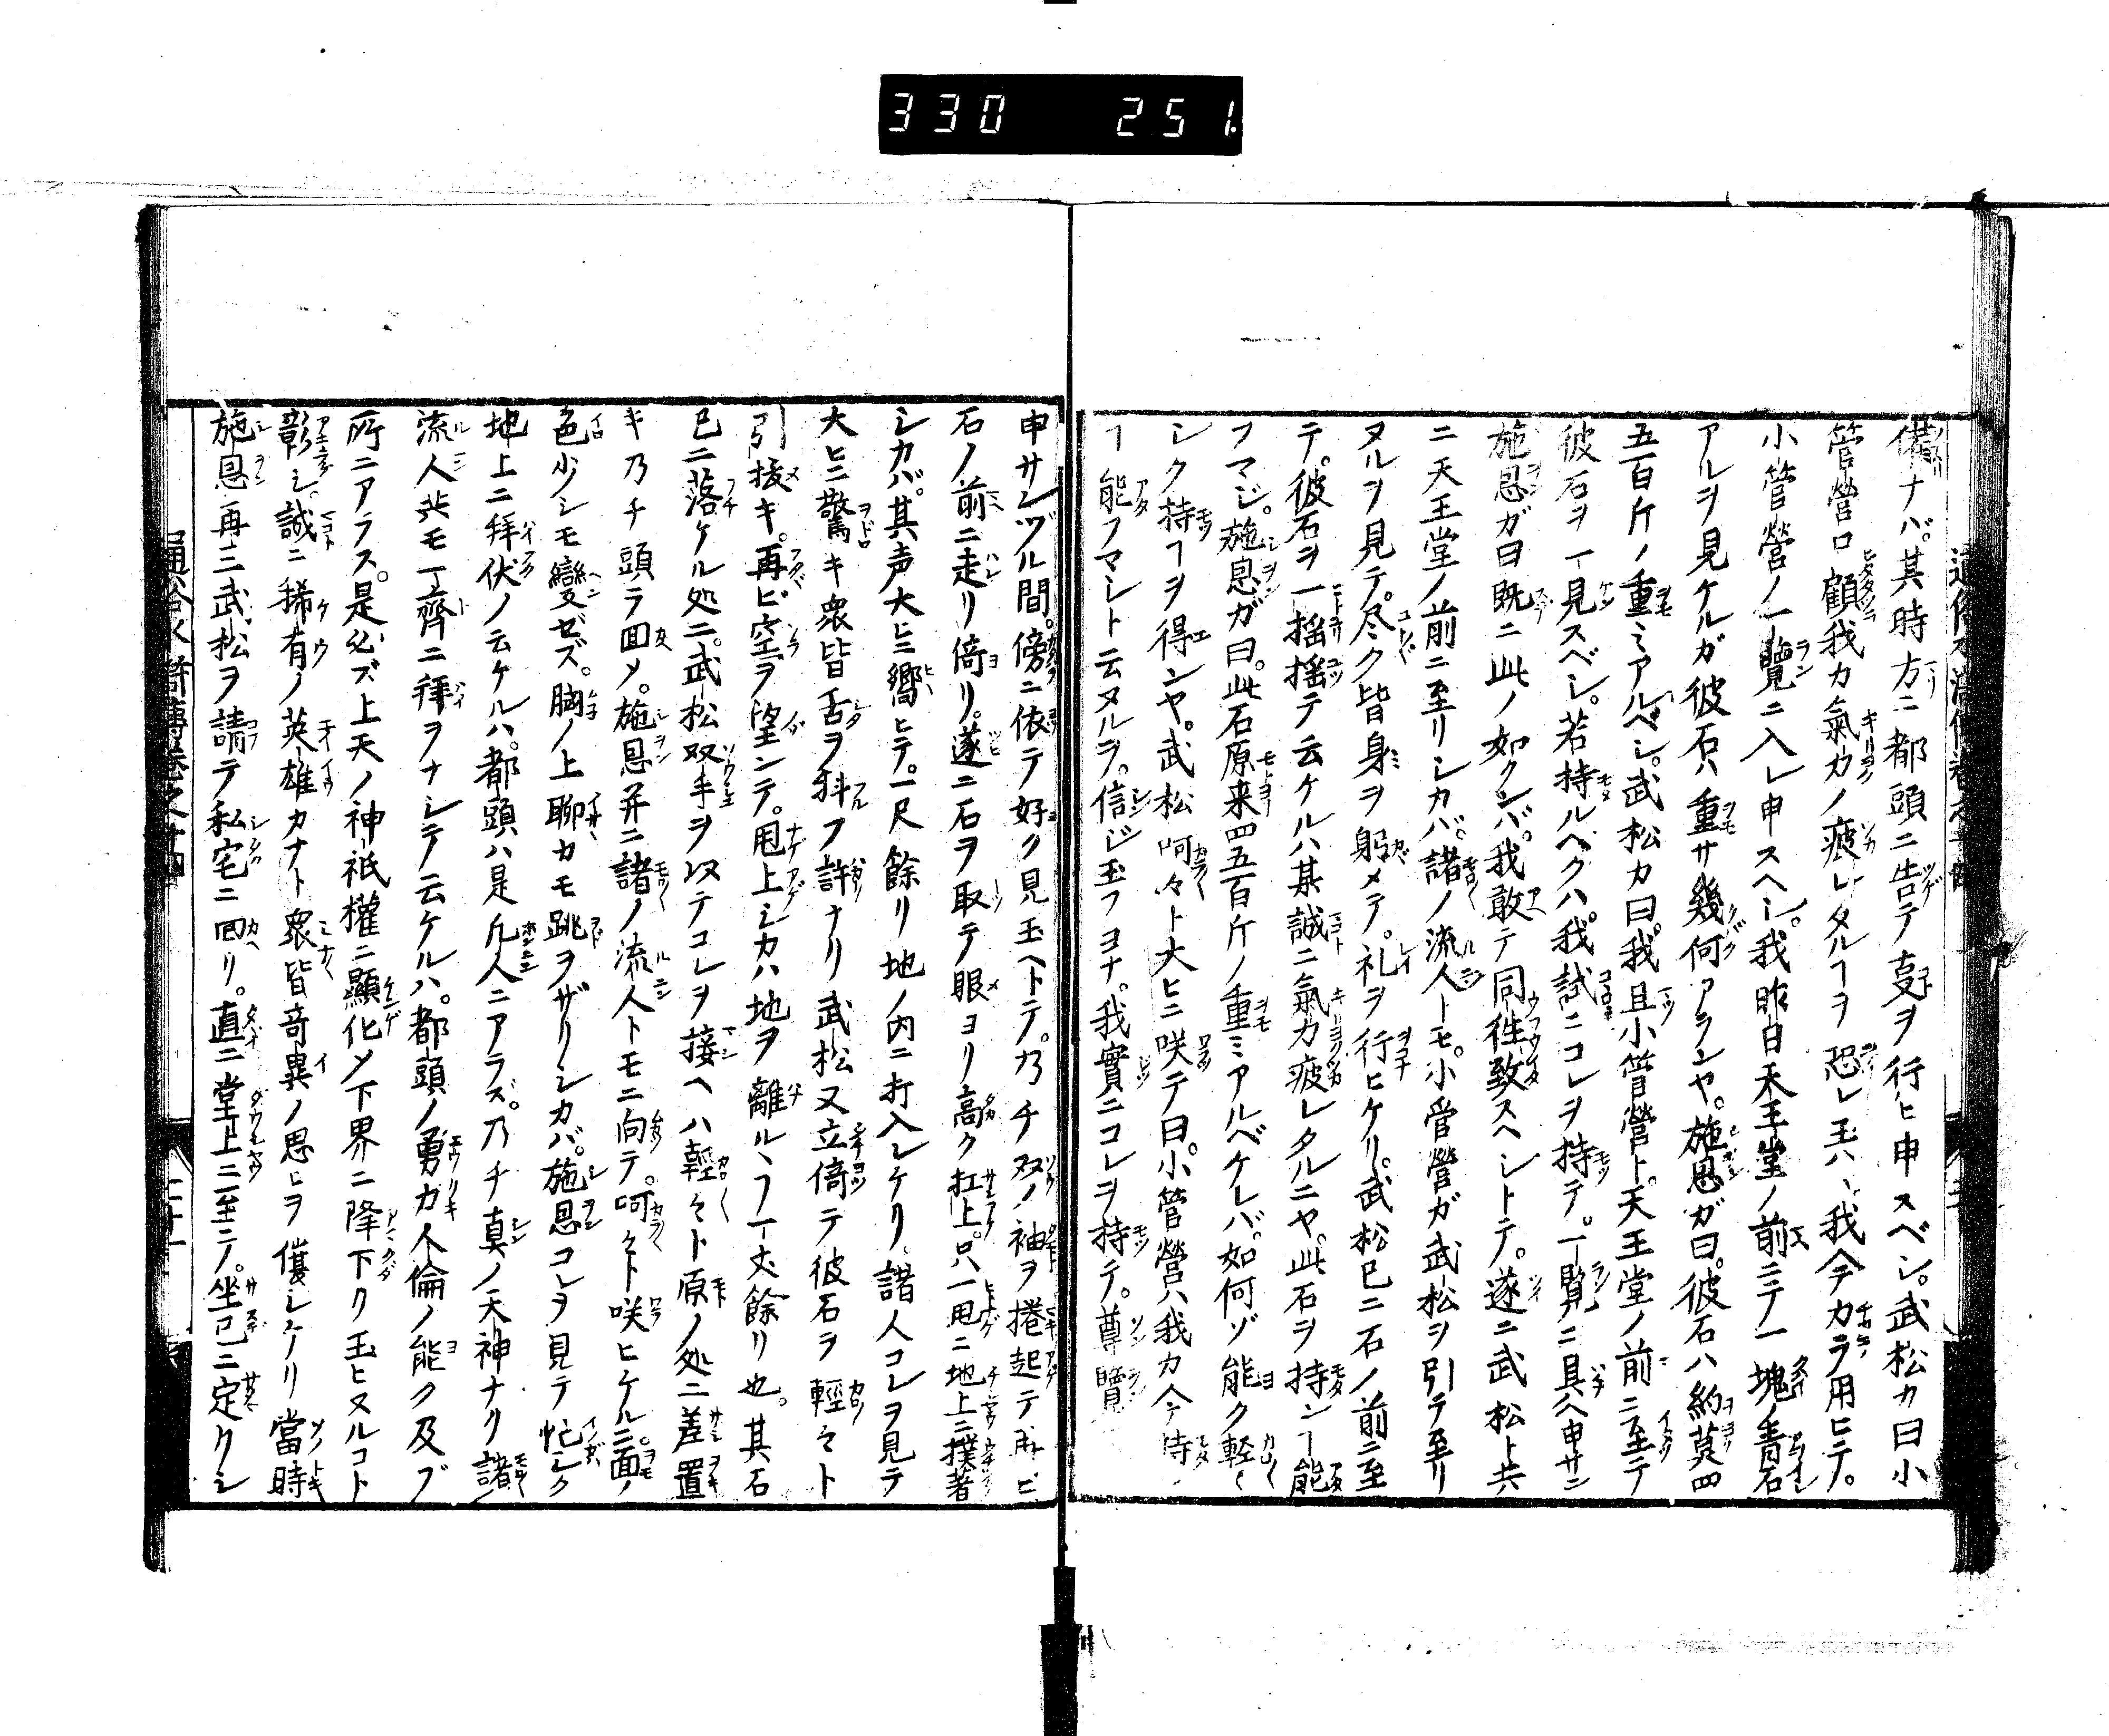 330 251.
備ナバ。其時方ニ都頭ニ告テ夏ヲ行ヒ申スベシ。武松カ曰小
管營ロ顧我カ氣力ノ疲レタルヿヲ恐レ玉ハヽ我今テカラ用ヒテ。
小管營ノ一覽ニ入レ申スヘシ。我昨日天王堂ノ前ニテ一塊ノ青石
アルヲ見ケルガ彼石ハ重サ幾何アランヤ。施恩ガ曰。彼石ハ約莫四
五百斤ノ重ミアルベシ。武松カ曰。我且小管營ト。天王堂ノ前ニ至テ
彼石ヲ一見スベシ。若持ルヘクハ。我試ニコレヲ持テ。一覽ニ具ヘ申サン
施恩ガ曰既ニ此ノ如クンバ。我敢テ同徃致スヘシトテ。遂ニ武松ト共
ニ天王堂ノ前ニ至リシカバ。諸ノ流人トモ。小管營ガ武松ヲ引テ至リ
ヌルヲ見テ。尽ク皆身ヲ躬メテ。礼ヲ行ヒケリ。武松已ニ石ノ前ニ至
テ。彼石ヲ一揺揺テ云ケルハ某誠ニ氣力疲レタルニヤ。此石ヲ持ンヿ能
フマジ。施恩ガ曰。此石原来四五百斤ノ重ミアルベケレバ。如何ゾ能ク軽〱
シク持ヿヲ得ンヤ。武松呵々ト大ヒニ咲テ曰。小管營ハ我カ今持
ヿ能フマシト云ヌルヲ。信ジ玉フヨナ。我實ニコレヲ持テ。尊覽
申サンヅル間。傍ニ依テ好ク見玉ヘトテ。乃チ双ノ袖ヲ捲起テ再ビ
石ノ前ニ走リ倚リ。遂ニ石ヲ取テ眼ヨリ高ク扛上。只一甩ニ地上ニ撲著
シカバ。其声大ヒニ響ヒテ。一尺餘リ地ノ内ニ打入レケリ。諸人コレヲ見テ
大ヒニ驚キ衆皆舌ヲ抖フ許ナリ武松又立倚テ彼石ヲ輕々ト
引接キ。再ビ空ヲ望ンテ。甩上シカハ地ヲ離ルヽヿ一丈餘リ也。其石
已ニ落ケル処ニ。武松双手ヲ以テコレヲ接ヘハ輕々ト原ノ処ニ差置
キ乃チ頭ラ回メ。施恩并ニ諸ノ流人トモニ向テ。呵々ト咲ヒケルニ。面ノ
色少シモ變ゼズ。胸ノ上聊カモ跳ヲザリシカバ。施恩コレヲ見テ忙シク
地上ニ拜伏ノ云ケルハ。都頭ハ是凡人ニアラズ。乃チ真ノ天神ナリ諸
流人共モ一齊ニ拜ヲナシテ云ケルハ。都頭ノ勇力人倫ノ能ク及ブ
所ニアラス。是必ズ上天ノ神祇權ニ顯化メ下界ニ降下リ玉ヒヌルコト
彰シ。誠ニ稀有ノ英雄カナト衆皆奇異ノ思ヒヲ催シケリ當時
施恩再三武松ヲ請テ私宅ニ回リ。直ニ堂上ニ至テ。坐已ニ定リシ